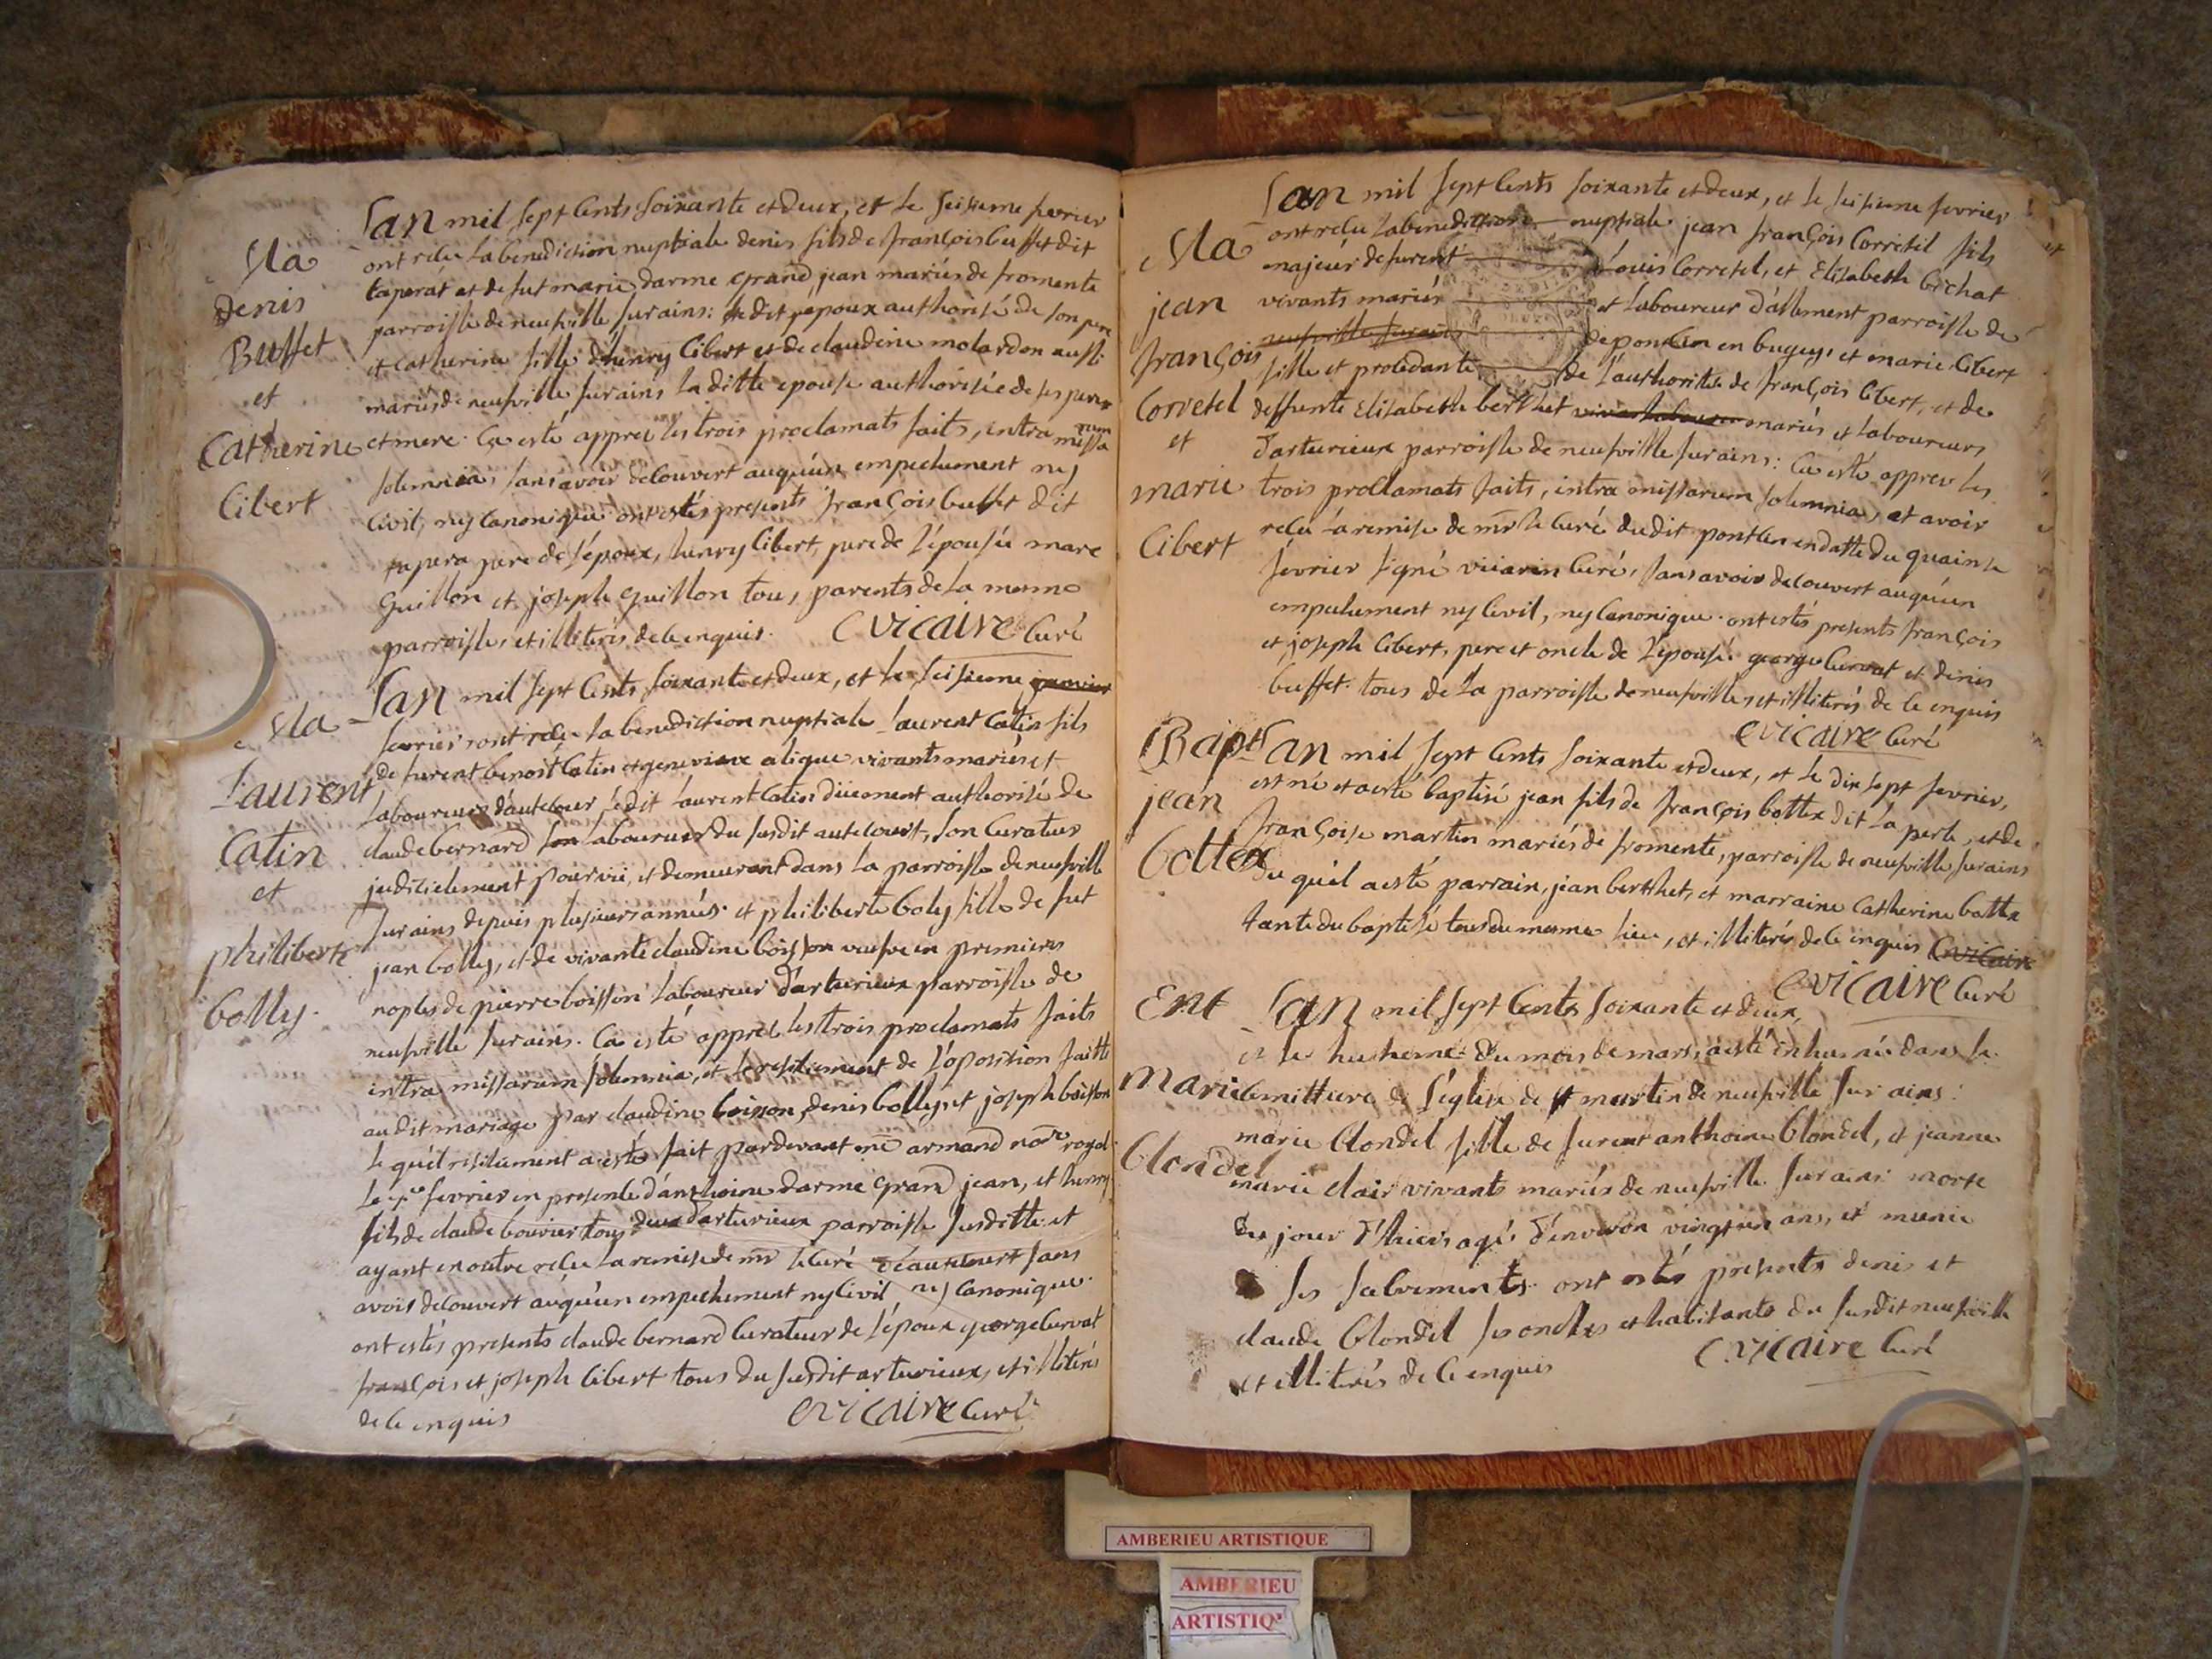 Ma
denis
Buffet
et
Catherine
Cibert
Lan mil sept cents soixante et deux, et le seisieme fevrier
ont recu la benediction nuptiale denis fils de françois buffet dit
taperat et de fut marie darme grand jean mariés de fromente
parroisse de neufville surains: ledit époux authorisé de son pere
et catherine fille d'henry Cibert et de claudine molardon aussi
mariés de neufville surains la ditte epouse authorisée de ses pere
et mere. Ça esté appres les trois proclamats faits, intra missarum
solemnia, sans avoir decouvert auquéun empechement ny
civil, ny canonique. ont estés presents françois buffet dit
tapera pere de l'époux, henry Cibert, pere de l'épousée marc
Guillon et joseph guillon tous parents de la mesme
parroisse, et illiterés de ce enquis. C vicaire Curé
Ma
Laurent
Catin
et
philiberte
bolly.
Lan mil sept Cents soixante et deux, et le seisieme janvier
fevrier ont recu la benediction nuptiale laurent Catin fils
de furent benoit Catin et genevieve aligue vivants mariés et
laboureurs d'autecour ledit laurent Catin düement authorisé de
claude bernard son laboureur du susdit autecourt, son Curateur
judicielement pourvü, et demeurant dans la parroisse de neufville
surains depuis plusieurs années. et philiberte boly fille de fut
jean bolly, et de vivante claudine boisson veufve en premieres
noples de pierre boisson laboureur d'arturieux parroisse de
neufville surains. Ça esté appres les trois proclamats faits
intra missarum solemnia, et le resiliement de l'oposition faitte
audit mariage par claudine boisson, denis bolly, et joseph boisson
le quél resiliement a esté fait pardevant me armand nore royal
le fevrier en presence d'anthoine darme grand jean, et henry
fils de claude bouvier tous deux d'arturieux parroisse susditte. et
ayant en outre recu la remise de mr le Curé d'autecourt sans
avoir decouvert auquéun empechement ny civil ny canonique.
ont estés presents claude bernard Curateur de l'époux george Curvat
françois et joseph Cibert tous du susdit arturieux, et illiterés
de ce enquis C vicaire Curé
Ma
jean
françois
Corretel
et
marie
Cibert
Lan mil sept Cents soixante et deux, et le seisieme fevrier
ont recu la benediction nuptiale jean françois Corretel fils
majeur de furent Louis Corretel, et Elizabeth Cochat
vivants mariés et laboureur d'allement parroisse de
neufville surains de poncin en bugey, et marie Cibert
fille et procedante de l'authorité de françois Cibert, et de
deffunte Elizabeth berthet mariés et laboureurs
d'arturieux parroisse de neufville surains: Ça esté appres les
trois proclamats faits, intra missarum solemnia, et avoir
recu la remise de mr le Curé dudit poncin en datte du quainse
fevrier signé Curé, sans avoir decouvert auquéun
empechement ny civil, ny canonique. ont estés presents françois
et joseph Cibert, pere et oncle de l'épousé. george Curvat et denis
buffet. tous de la parroisse de neufville, et illiterés de ce enquis
C vicaire Curé
Bapt
jean
bottex
Lan mil sept Cents soixante et deux, et le dix sept fevrier,
est né et a esté baptisé jean fils de françois bottex dit la perle, et de
françoise martin mariés de fromente, parroisse de neufville surains
du quél a esté parrain, jean berthet, et marraine catherine bottex
tante du baptisé tous du mesme lieu, et illiterés de ce enquis C vicaire
C vicaire Curé
Ent
marie
blondel
Lan mil sept Cents soixante et deux,
et le huitieme du mois de mars, a esté inhumée dans le
cemittiere de l'église de st martin de neufville sur ains.
marie blondel fille de furent anthoine blondel, et jeanne
marie clair vivants mariés de neufville surains morte
du jour d'hiers agé d'environ vingt un ans, et munie
de ses sacrements. ont estés presents denis et
claude blondel ses oncles et habitants du susdit neufville
et illiterés de ce enquis C vicaire Curé
AMBERIEU ARTISTIQUE
AMBERIEU
ARTISTIQ